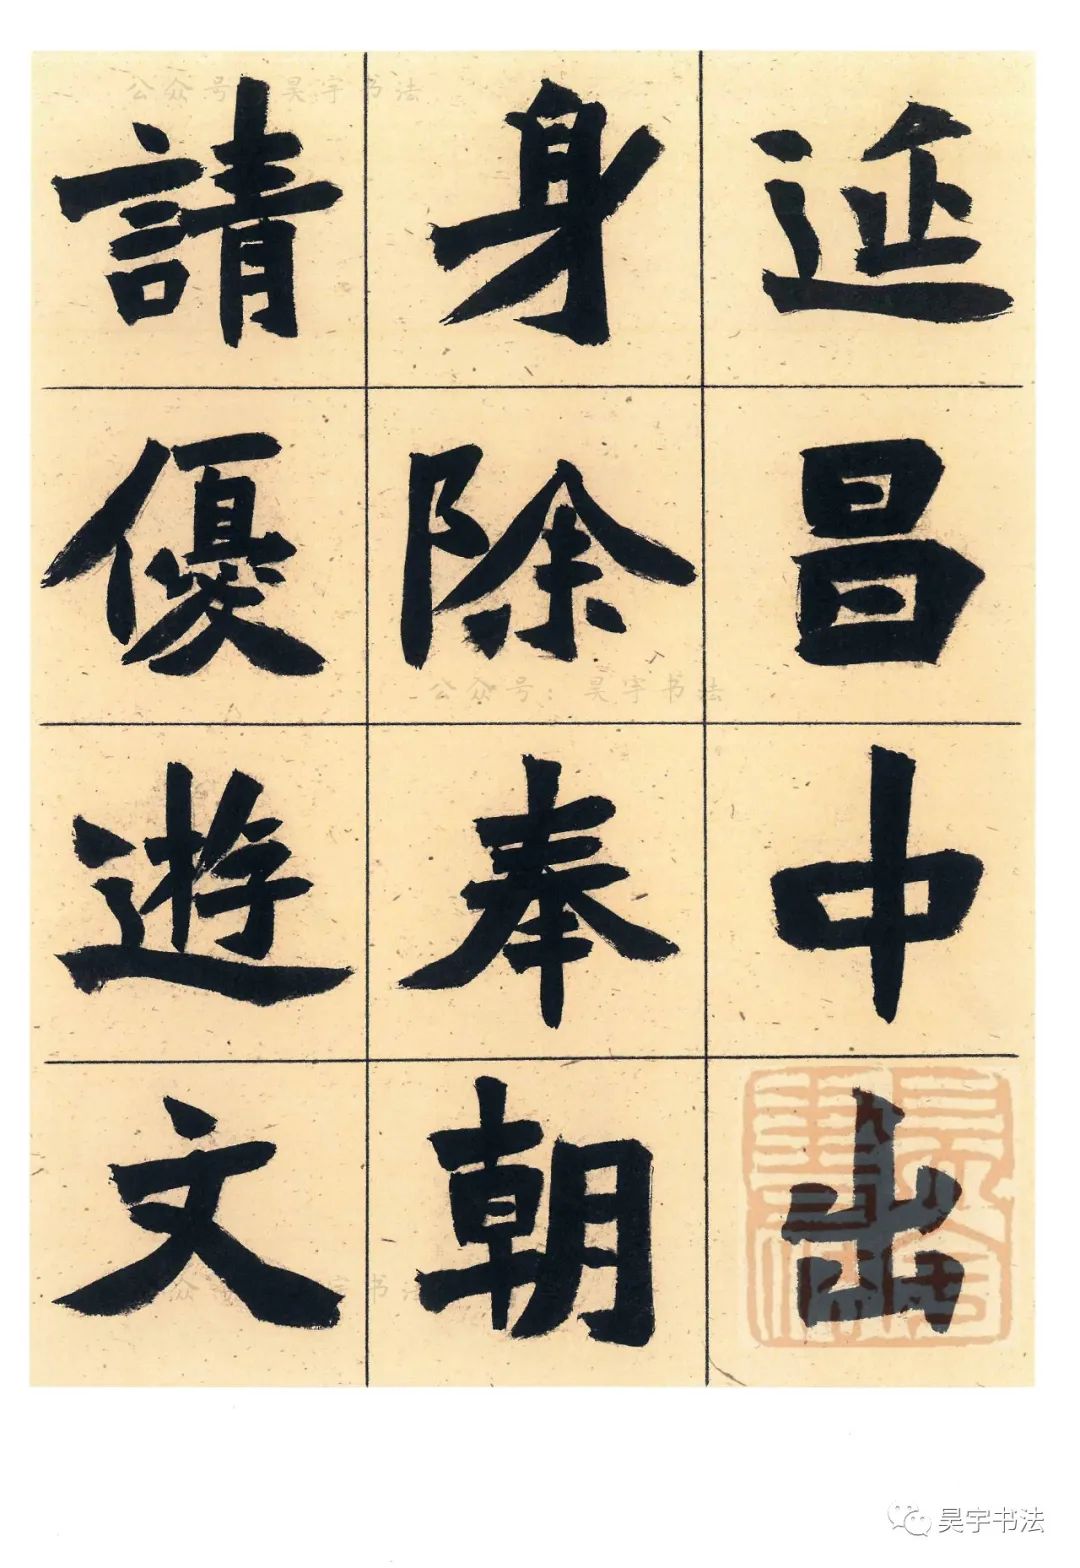 延昌中出
身除奉朝
請優遊文
公众号:昊宇书法
公众号:昊宇书法
昊宇书法